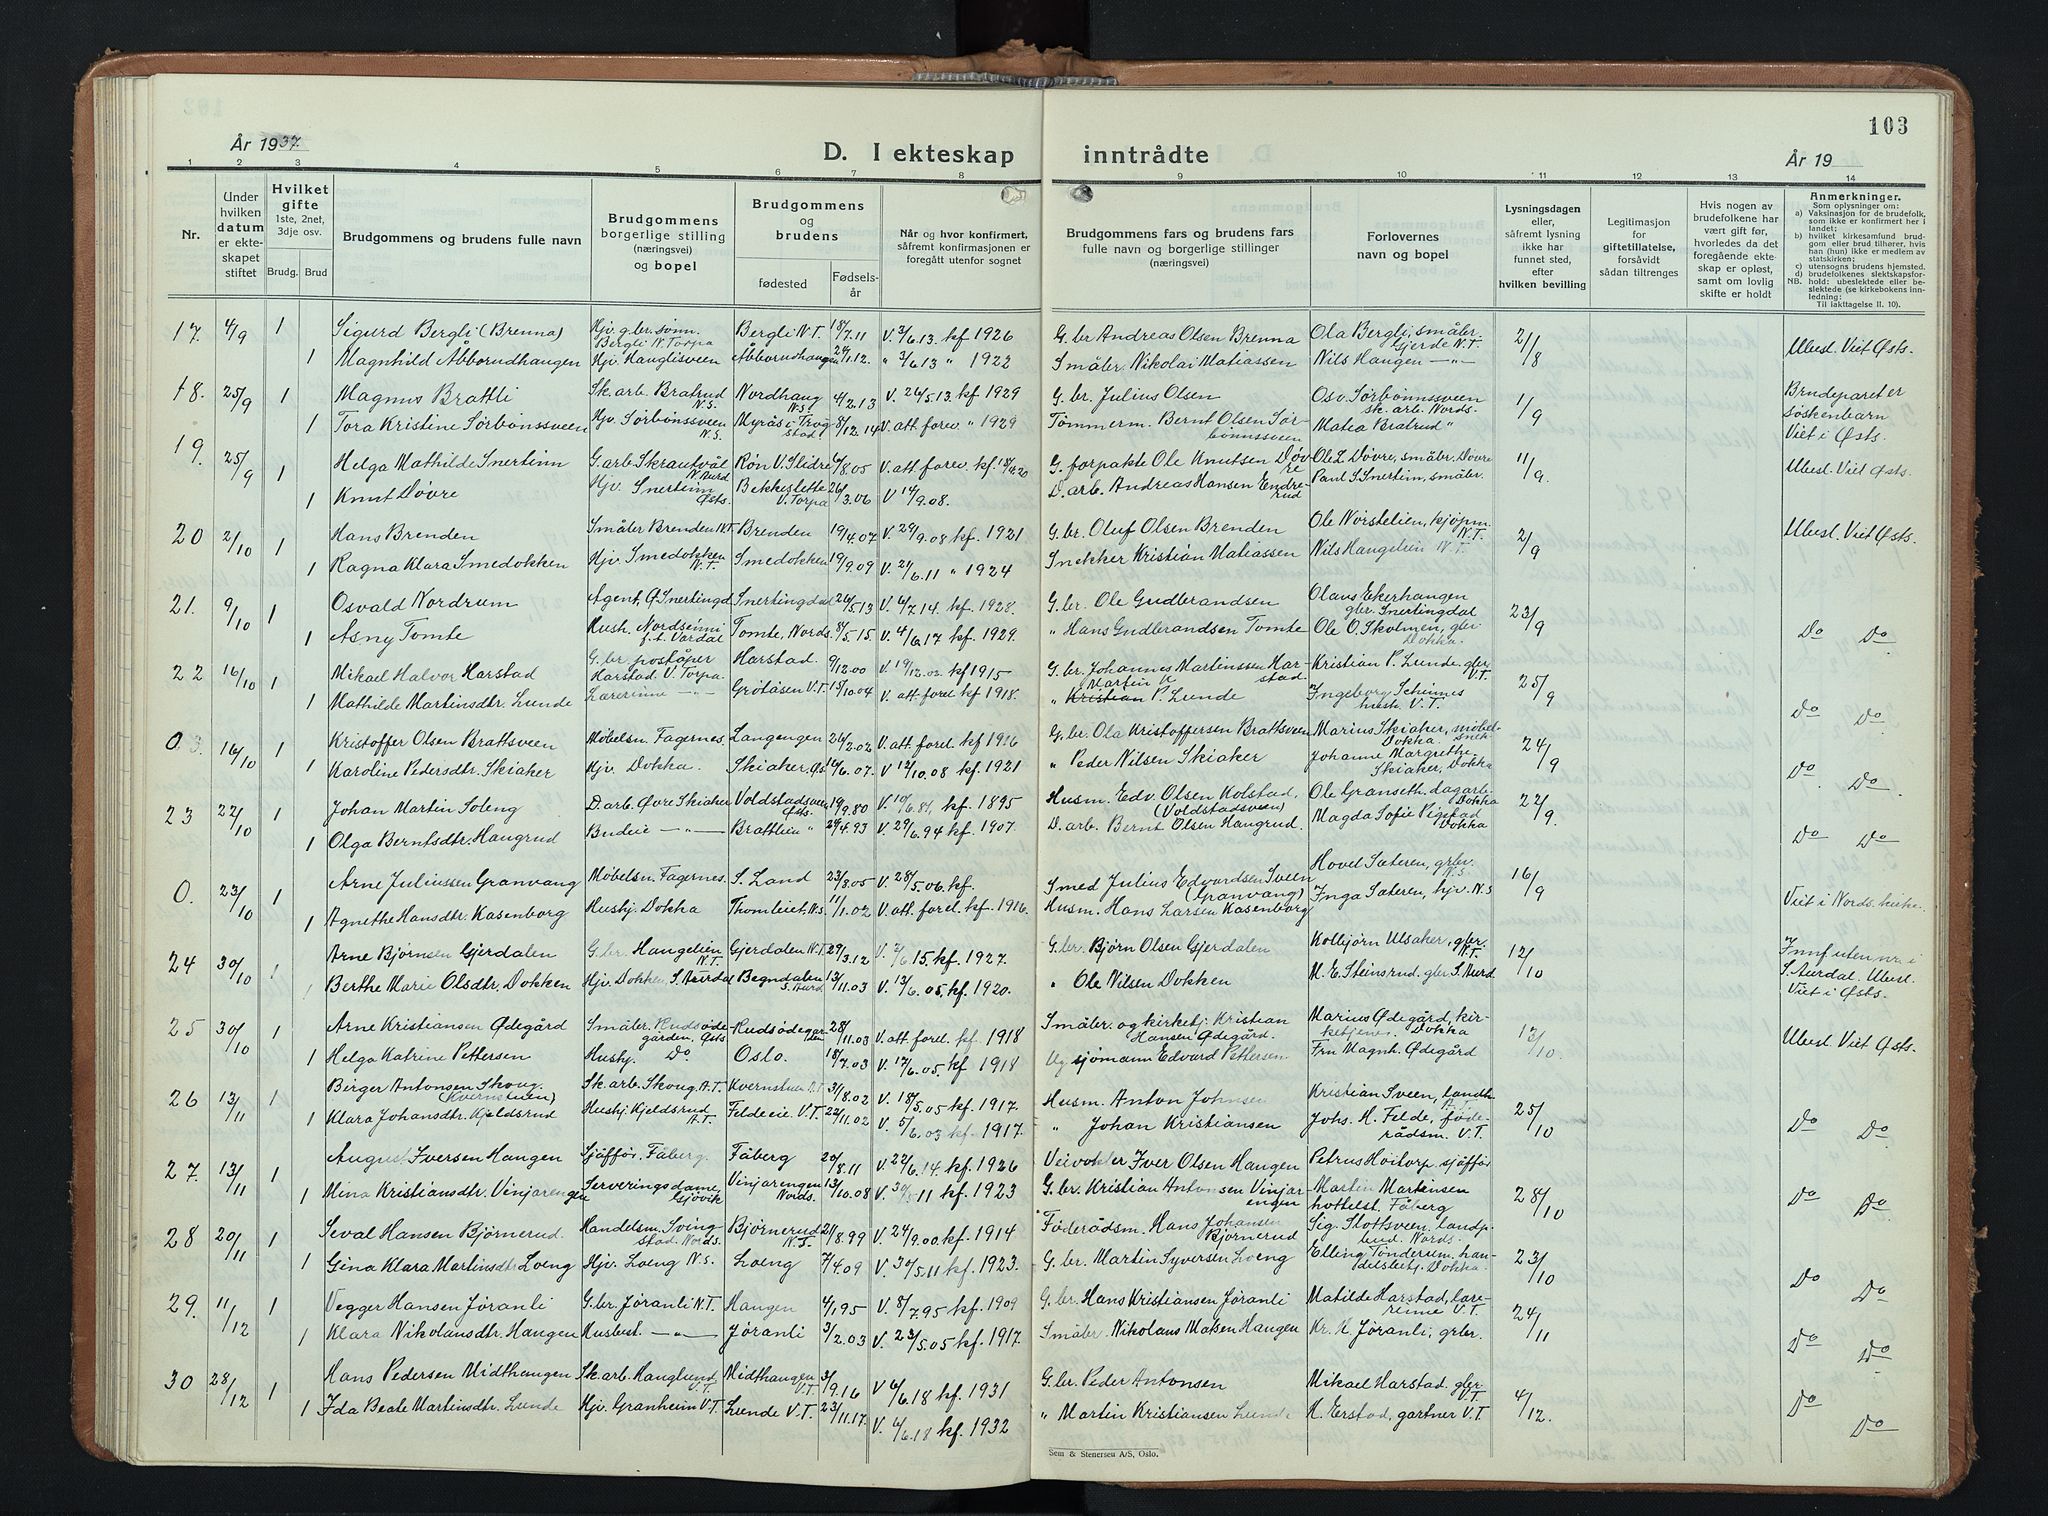 103
År 1937.
D. I ekteskap inntrådte
År 19
1 2 3 4 5 6 7 8 9 10 11 12 13 14
Nr.
Under hvilken datum er ekteskapet stiftet
Hvilket gifte
1ste, 2net, 3dje osv.
Brudg. Brud
Brudgommens og brudens fulle navn
Brudgommens borgerlige stilling (næringsvei) og bopel
Brudgommens og brudens
fødested
Fødselsår
Når og hvor konfirmert, såfremt konfirmasjonen er foregått utenfor sognet
Brudgommens fars og brudens fars fulle navn og borgerlige stillinger (næringsvei)
Forlovernes navn og bopel
Lysningsdagen eller, såfremt lysning ikke har funnet sted, efter hvilken bevilling
Legitimasjon for giftetillatelse, forsåvidt sådan tiltrenges
Hvis nogen av brudefolkene har vært gift før, hvorledes da det foregående ekteskap er opløst, samt om lovlig skifte er holdt
Anmerkninger.
Som oplysninger om:
a) Vaksinasjon for de brudefolk, som ikke er konfirmert her i landet;
b) hvilket kirkesamfund brudgom eller brud tilhører, hvis han (hun) ikke er medlem av statskirken;
c) utensogns brudens hjemsted.
d) brudefolkenes slektskapsforhold: ubeslektede eller beslektede (se kirkebokens innledning:
NB. Til Iakttagelse II. 10).
17. 4/9 1 Sigurd Bergli (Brenna) Hjv. g.br. sønn. Bergli N. Torpa Bergli N.T. 18/7.11 V. 3/6.13. kf 1926 G. br Andreas Olsen Brenna Ola Bergli, småbr. Gjerde N.T. 2/8 Ubesl. Viet Østs.
1 Magnhild Åbborudhangen Hjv. Hanglisveen Åbborudhangen 24/1.12. " 3/6.13 " 1922 Småbr. Nikolai Matiassen Nils Hangen
18. 25/9 1 Magnus Brattli Sk. arb. Bratrud N.S. Nordhang N.S. 4/2.13 V. 26/5.13. kf 1929 G. br. Julius Olsen Osv. Sørbønnssveen sk. arb. Nords. 1/9 Brudeparet er søskenbarn
1 Tora Kristine Sørbønssveen Hjv. Sørbønssveen N.S. Myrås i Trøgstad 8/12.14 V. att. forev. " 1929 Tømmerm. Bernt Olsen Sørbønnssveen Matea Bratrud " Viet i Østs.
19. 25/9 1 Helga Mathilde Snertinn G. arb. Skrautvål N. Aurd Røn V. Slidre 6/8.05 V. att forev. kf. G. forpakte Ole Knutsen Døvre Ole L. Døvre, småbr. Døvre 11/9. Ubesl. Viet Østs.
1 Knut Døvre Hjv. Snertinn Østs. Bekkesletta V. Torpa 26/3.06 V. 14/9.08. D. arb. Andreas Hansen Endrerud Paul S. Snertinn, småbr.
20 2/10 1 Hans Brenden Småbr Brenden N.T. Brenden 19/4.07 V. 29/9.08 kf. 1921 G. br. Oluf Olsen Brenden Ole Nørstelien, kjøpm. N.T. 2/9 Ubesl. Viet Østs.
1 Ragna Klara Smedokken Hjv. Smedokken N.T. Smedokken 19/9.09 V. 21/6.11 " 1924 Snekker Kristian Matiassen Nils Hangelien N.T.
21. 9/10 1 Osvald Nordrum Agent, Ø Snertingd. Snertingdal 26/5.13 V. 6/7.14. kf. 1928. G. br. Ole Gudbrandsen Olaus Ekerhangen gbr. Snertingdal 23/9 Do Do
1 Asny Tomte Hush. Nordsinni f. t. Vardal Tomte, Nords. 8/5.15 V. 4/6.17 kf. 1929. " Hans Gudbrandsen Tomte Ole O. Skolmen, gbr Dokka.
22 16/10 1 Mikael Halvor Harstad G. br. poståper Harstad V. Torpa Harstad. 9/12.00 V. 19/12.02. kf 1915 G. br. Johannes Martinssen Harstad. Kristian P. Lunde, gbr V.T. 25/9 Do Do
1 Mathilde Martinsdtr. Lunde Lærerinne Grøtåsen V.T. 15/10.04 V. att. forel kf 1918. " Martin Kristian P. Lunde Ingeborg Schinnes hush. V.T.
0. 16/10 1 Kristoffer Olsen Brattsveen Møbelsn. Fagernes. Langengen 26/2.02 V. att. forel. kf 1916 G. br. Ola Kristoffersen Brattsveen Marius Skiaker, møbelsnek. Dokka 24/9 Do Do
1 Karoline Pedersdtr. Skiaker Hjv. Dokka. Skiaker, Øs. 16/6.07. V 12/10.08 kf. 1921 " Peder Nilsen Skiaker Johanne Margrethe Skiaker, Dokka
23 22/10 1 Johan Martin Soleng D. arb. Øvre Skiaker Voldstadsveen Østs. 19/9.80 V. kf 1895 Husm. Edv. Olsen Kolstad. (Voldstadsveen) Ole Granseth, dagarb. Dokka 22/9. Do Do
1 Olga Berntsdtr. Hangrud Budeie Brattlien " 29/4.93 V. 29/6.94 kf. 1907. D. arb. Bernt Olsen Hangrud. Magda Sofie Pigstad Dokka
0. 23/10 1 Arne Juliussen Granvang Møbelsn. Fagernes. S. Land 23/8.05 V. 28/5.06. kf. Smed Julius Edvardsen Sveen (Granvang) Hovel Sæteren, grbr. N.S. 16/9 Viet i Nords. kirke.
1 Agnethe Hansdtr. Kasenborg Hushj. Dokka Thomleiet, N.S. 11/1.02 V. att. forel. kf. 1916. Husm. Hans Larsen Kasenborg Inga Sæteren, hjv. N.S
24 30/10 1 Arne Bjørnsen Gjerdalen G. br. Hangelien N.T. Gjerdalen N.T. 29/3.12 V. 2/6.15. kf. 1927. G. br. Bjørn Olsen Gjerdalen Kolbjørn Ulsaker, gbr. N.T. 12/10 S. Aurdal. Ubesl.
1 Berthe Marie Olsdtr. Dokken Hjv. Dokken S. Aurdal Begndalen S. Aurd. 13/11.03 V. 13/6.05, kf. 1920. " Ole Nilsen Dokken M. E. Steinsrud, gbr S. Aurd Viet i Østs.
25 30/10 1 Arne Kristiansen Ødegård Småbr. Rudsødegården. Østs Rudsødegården 28/11.03 V. att. forel. kf. 1918 Småbr. og kirketj. Kristian Hansen Ødegård. Marius Ødegård, kirketjener. Dokka 13/10. Ubesl. Viet Østs.
1 Helga Katrine Pettersen Hushj. Do Oslo. 18/7.03 V. 17/6.05. kf 1918 Ug sjømann Edvard Pettersen Fru Magnh. Ødegård
26 13/11 1 Birger Antonsen Skoug. (Kvernstuen) Sk. arb. Skoug. A.T. Kvernstuen A.T. 31/8.02 V. 18/5.05 kf. 1917. Husm. Anton Johnsen Kristian Sveen, landh. A.T. 25/10 Do Do
1 Klara Johansdtr. Kjeldsrud Hushj. Kjeldsrud A.T. Feldeeie. V.T. 22/11.02 V. 5/6.03 kf. 1917. " Johan Kristiansen Johs. H. Felde, føderådsm. V.T.
27. 13/11 1 August Iversen Hangen Sjåffør. Fåberg. Fåberg 20/8.11 V. 22/6.14. kf. 1926 Veivokter Iver Olsen Hangen Petrus Høitorp sjåffør 28/10 Do Do
1 Mina Kristiansdtr. Vinjarengen Serveringsdame, Gjøvik Vinjarengen Nords. 13/10.08 V. kf. 1923 G. br. Kristian Antonsen Vinjarengen Martin Martinsen hottelst. Fåberg
28 20/11 1 Seval Hansen Bjørnerud. Handelsm. Svingstad. Nords. Bjørnerud N.S. 21/8.99 V. 24/9.00. kf. 1914 Føderådsm. Hans Johansen Bjørnerud Sig. Slottsveen, landp. bud. Nords. 23/10 Do Do
1 Gina Klara Martinsdtr. Loeng Hjv. Loeng N.S. Loeng 7/4.09 V. 30/5.11 kf. 1923. G. br. Martin Syversen Loeng Elling Tøndersum, handelsbetj. Dokka.
29. 11/12 1 Vegger Hansen Jøranli G. br. Jøranli N.T. Hangen 4/1.95 V. 8/7.95 kf. 1909 G. br. Hans Kristiansen Jøranli Matilde Harstad, lærerinne V.T. 24/11 Do Do
1 Klara Nikolausdtr. Hangen Husbest. Jøranli 3/2.03 V. 23/5.05 kf. 1917. Småbr. Nikolaus Matsen Hangen Kr. H. Jøranli, grbr.
30 28/12 1 Hans Pedersen Midthangen Sk. arb. Hanglund V.T. Midthangen V.T. 3/9.16 V 6/6.18 kf. 1931 G. br. Peder Antonsen Mikael Harstad. gbr. V.T. 4/12. Do Do
1 Ida Beate Martinsdtr. Lunde Hjv. Granheim V.T. Lunde V.T. 23/11.17. V. 6/6.18 kf. 1932 " Martin Kristiansen Lunde H. Erstad, gartner V.T.
Sem & Stenersen A/S, Oslo.